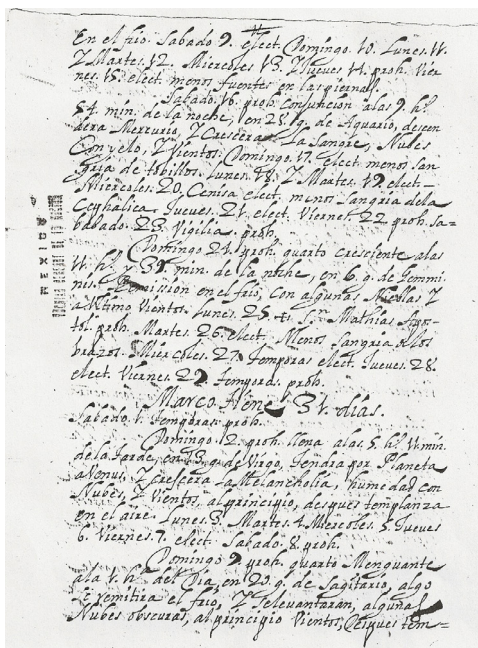 En el frio. Sabado 9. elect. Domingo. 10. Lunes. 11.
Z Martes. 12. Miercoles 13. Z Jueves 14. proh. Vier
nes. 15. elect. menos fuentes en las piernas.
Sabado. 16. proh. Conjuncion a las 9. hs.
54. min. de la noche, en 28. g. de Aquario, desen
Mercurio, Z Crescera La Sangre, Nubes
Con yelo, Z Vientos. Domingo. 17. elect. menos san
gria de tobillos. Lunes. 18. Z Martes. 19. elect-
Miercoles. 20. Cenisa elect. menos Sangria de la
Cephalica. Jueves. 21. elect. Viernes. 22 proh. Sa-
babado. 23. Vigilia. proh.
Domingo 24. proh. quarto cresciente a las
11. hs. y 39. min. de la noche, en 6. g. de Gemmi
nis. Remission en el frio, con algunas Z
a Vltimo Vientos. Lunes. 25 Mathias Apos-
tol. proh. Martes. 26. elect. Menos Sangria de los
brazos. Miercoles. 27. Temporas elect. Jueves. 28.
elect. Viernes. 29. Temporas. proh.
Marco tiene 31. dias.
Sabado. 1. Temporas. proh.
Domingo. 2. proh. llena a las. 5. hs. 11. min.
de la tarde, en 13. g. de Virgo, Tendra por Planeta
a Venus, Z crescera La Melancholia, humedad con
Nubes, Z Vientos, al principio, despues templanza
en el aire. Lunes. 3. Martes. 4. Miercoles. 5. Jueves
6. Viernes. 7. elect. Sabado. 8. proh.
Domingo. 9. proh. quarto Menguante
a la 1. hs. del Dia, en 20. g. de Sagitario, algo
Se remitira el frio, Z Selevantaran, algunas
Nubes obscuras, al principio Vientos, Despues tem=
MEXICO